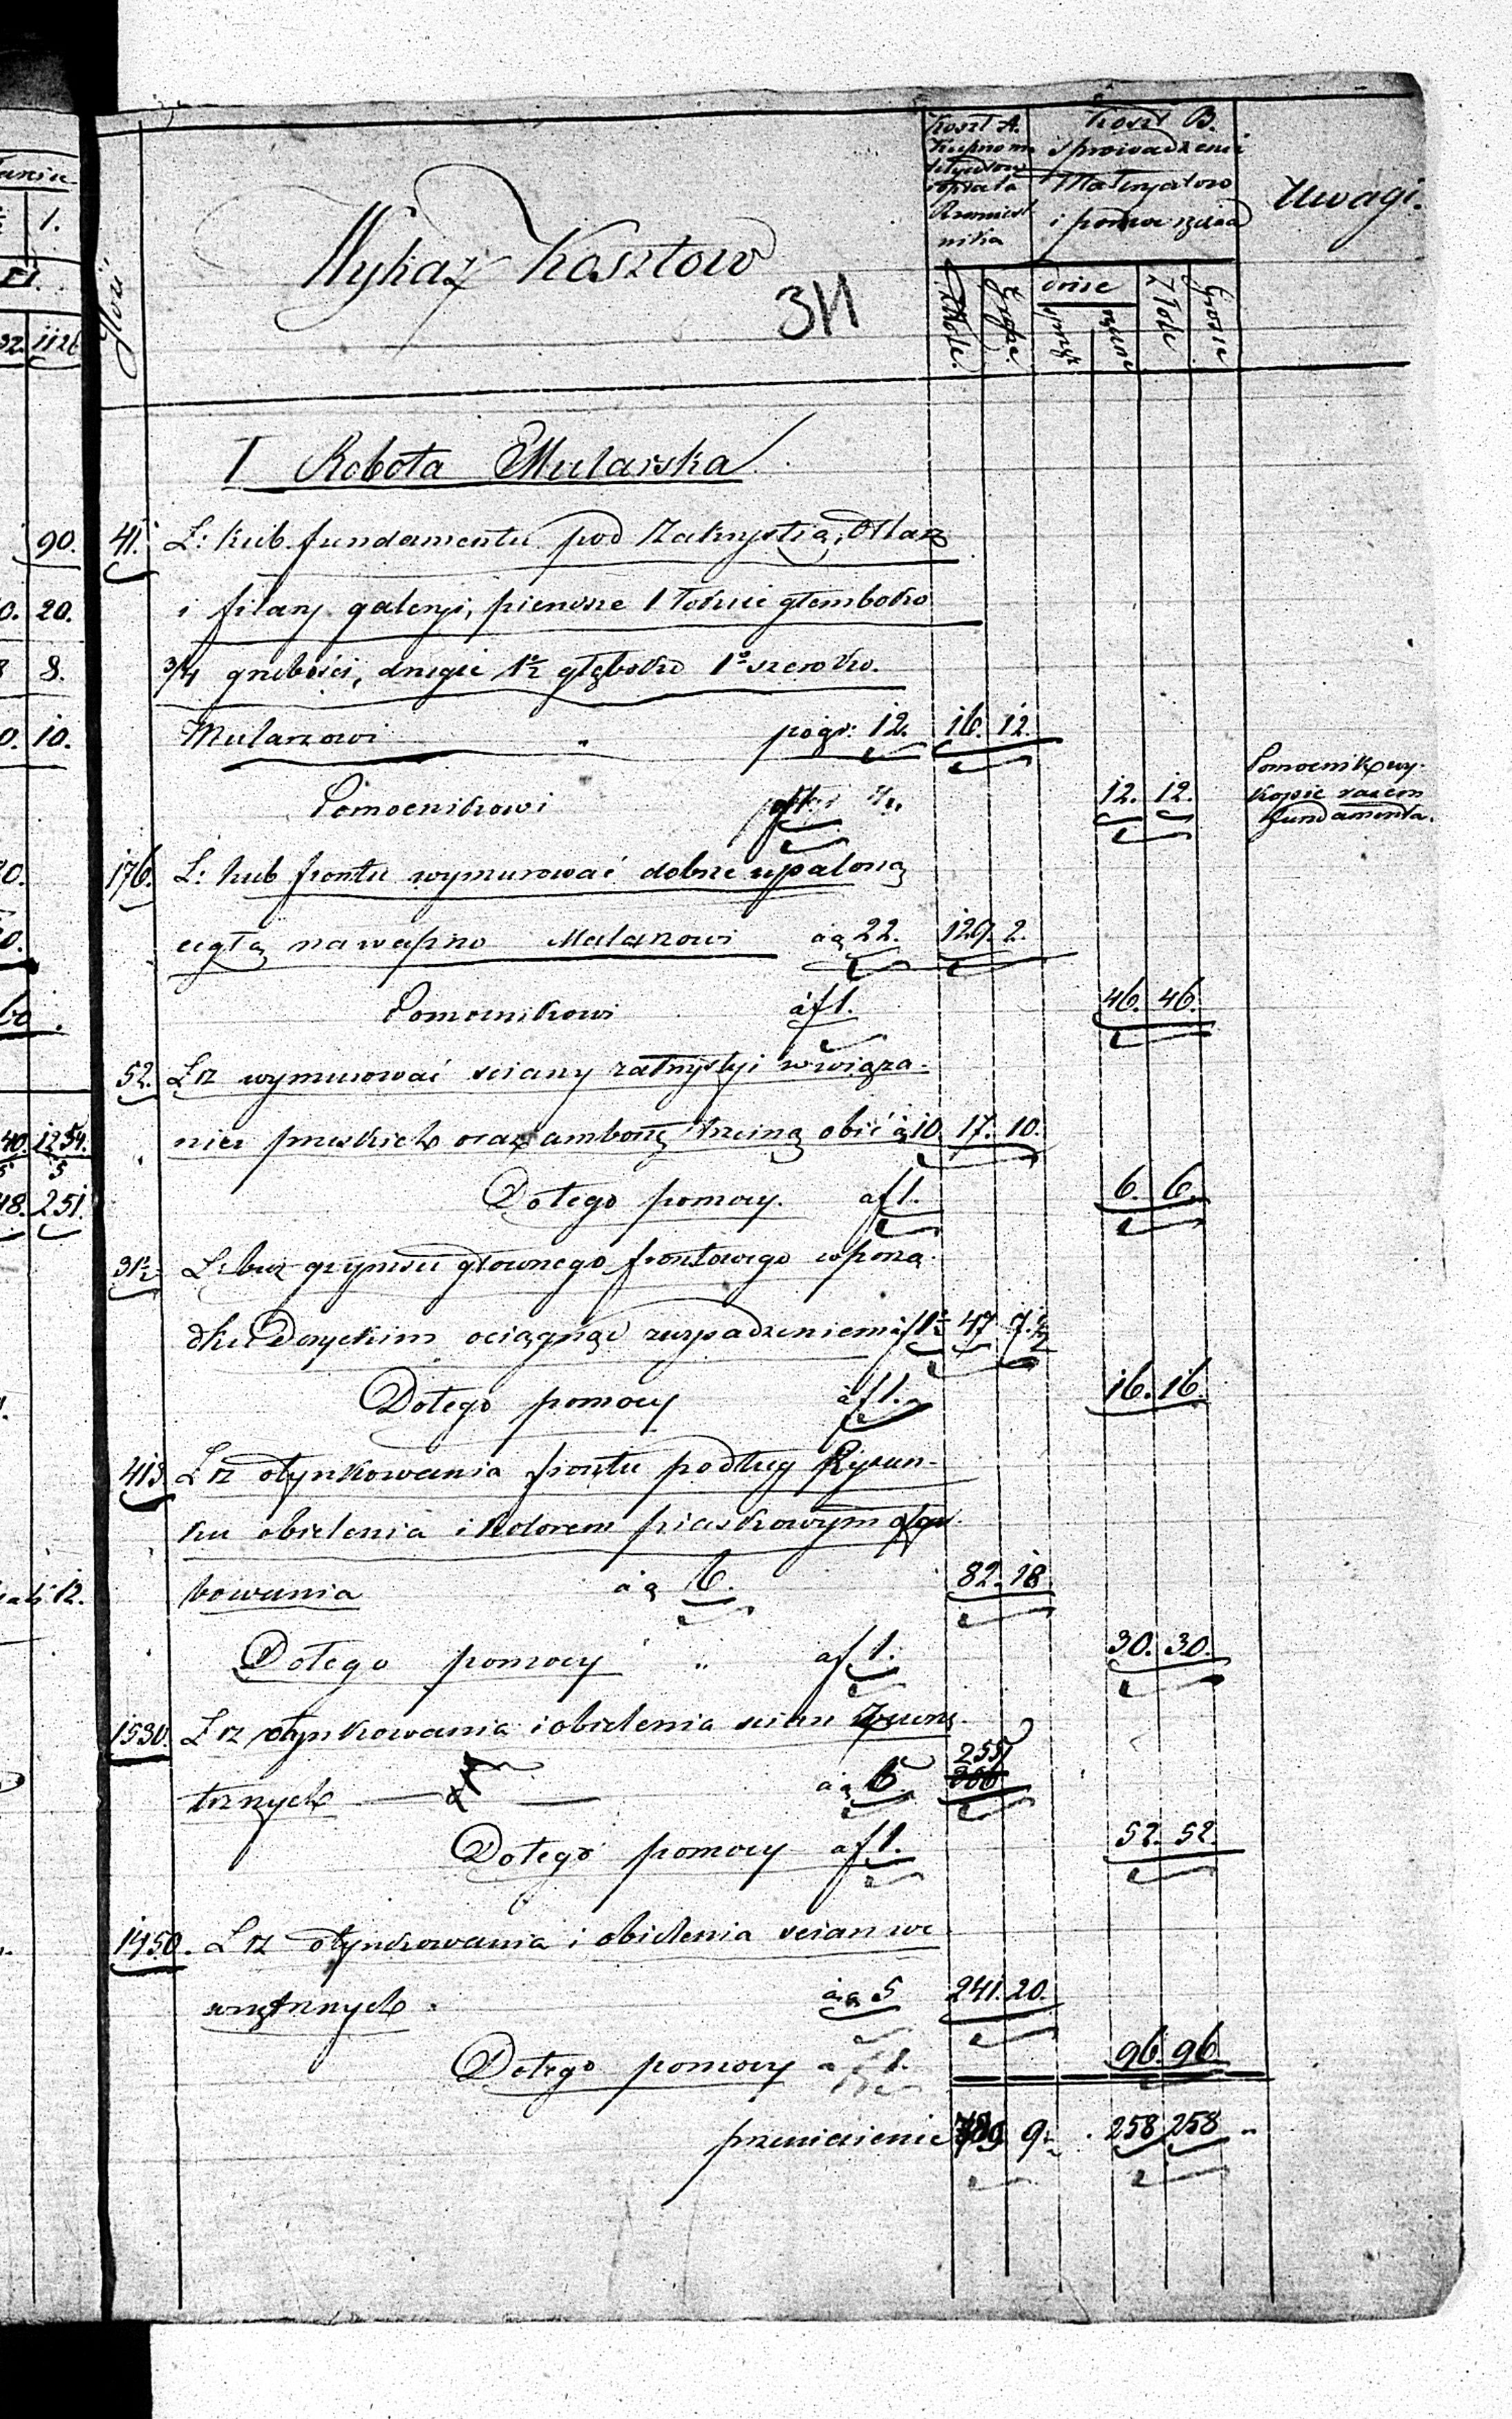 Wykaz Kosztow
311
Ilość
Koszt A.
Kupno m
i opłata
Rzemieśl
nika
Koszt B.
sprowadzenia
Materyałow
i pomoc
Uwagi.
Złote.
Grosze.
Dnie
sprzęż
ręczne
Złote
Grosze
I Robota Mularska
41. Ł: kub. fundamentu pod Zakrystią, Ołtarz
i filary galeryi, pierwsze 1 łokcie głemboko
3/4 grubości, drugie 1½ głęboko 1º szeroko.
Mularzowi " pogr: 12. 16. 12.
Pomocnikowi 12. 12.
Pomocnik wy-
kopie razem
fundamenta.
176. Ł: kub frontu wymurować dobrze wypaloną
cegłą na wapno Mularzowi àg 22. 129. 2.
Pomocnikowi àf 1. 46. 46.
52. Ł□ wymurować sciany zakrystyi w wiąza-
niu pruskich oraz ambonę trzciną obić àg 10. 17. 10.
Do tego pomocy. af 1. 6. 6.
31½ Ł: bież gzymsu głownego frontowego w porzą-
dku Doryckim ociągnąć zwypadzeniem àf 1½ 47. 7.½
Do tego pomocy àf 1. 16. 16.
413 Ł□ otynkowania frontu podług Rysun-
ku obielenia i kolorem piaskowym
bowania àg 6. 82. 18
Do tego pomocy " af 1. 30. 30.
1530. Ł□ otynkowania i obielenia scian Zewnę-
trznych àg 5 255
306
Do tego pomocy af 1. 52. 52.
1450. Ł□ otynkowania i obielenia scian we-
wnętrznych. àg 5 241. 20.
Do tego pomocy af 1. 96. 96
przeniesienie 789 9½ 258 258 "
1.
1126
90.
20.
8.
10.
40. 1254.
5
48. 251.
12.